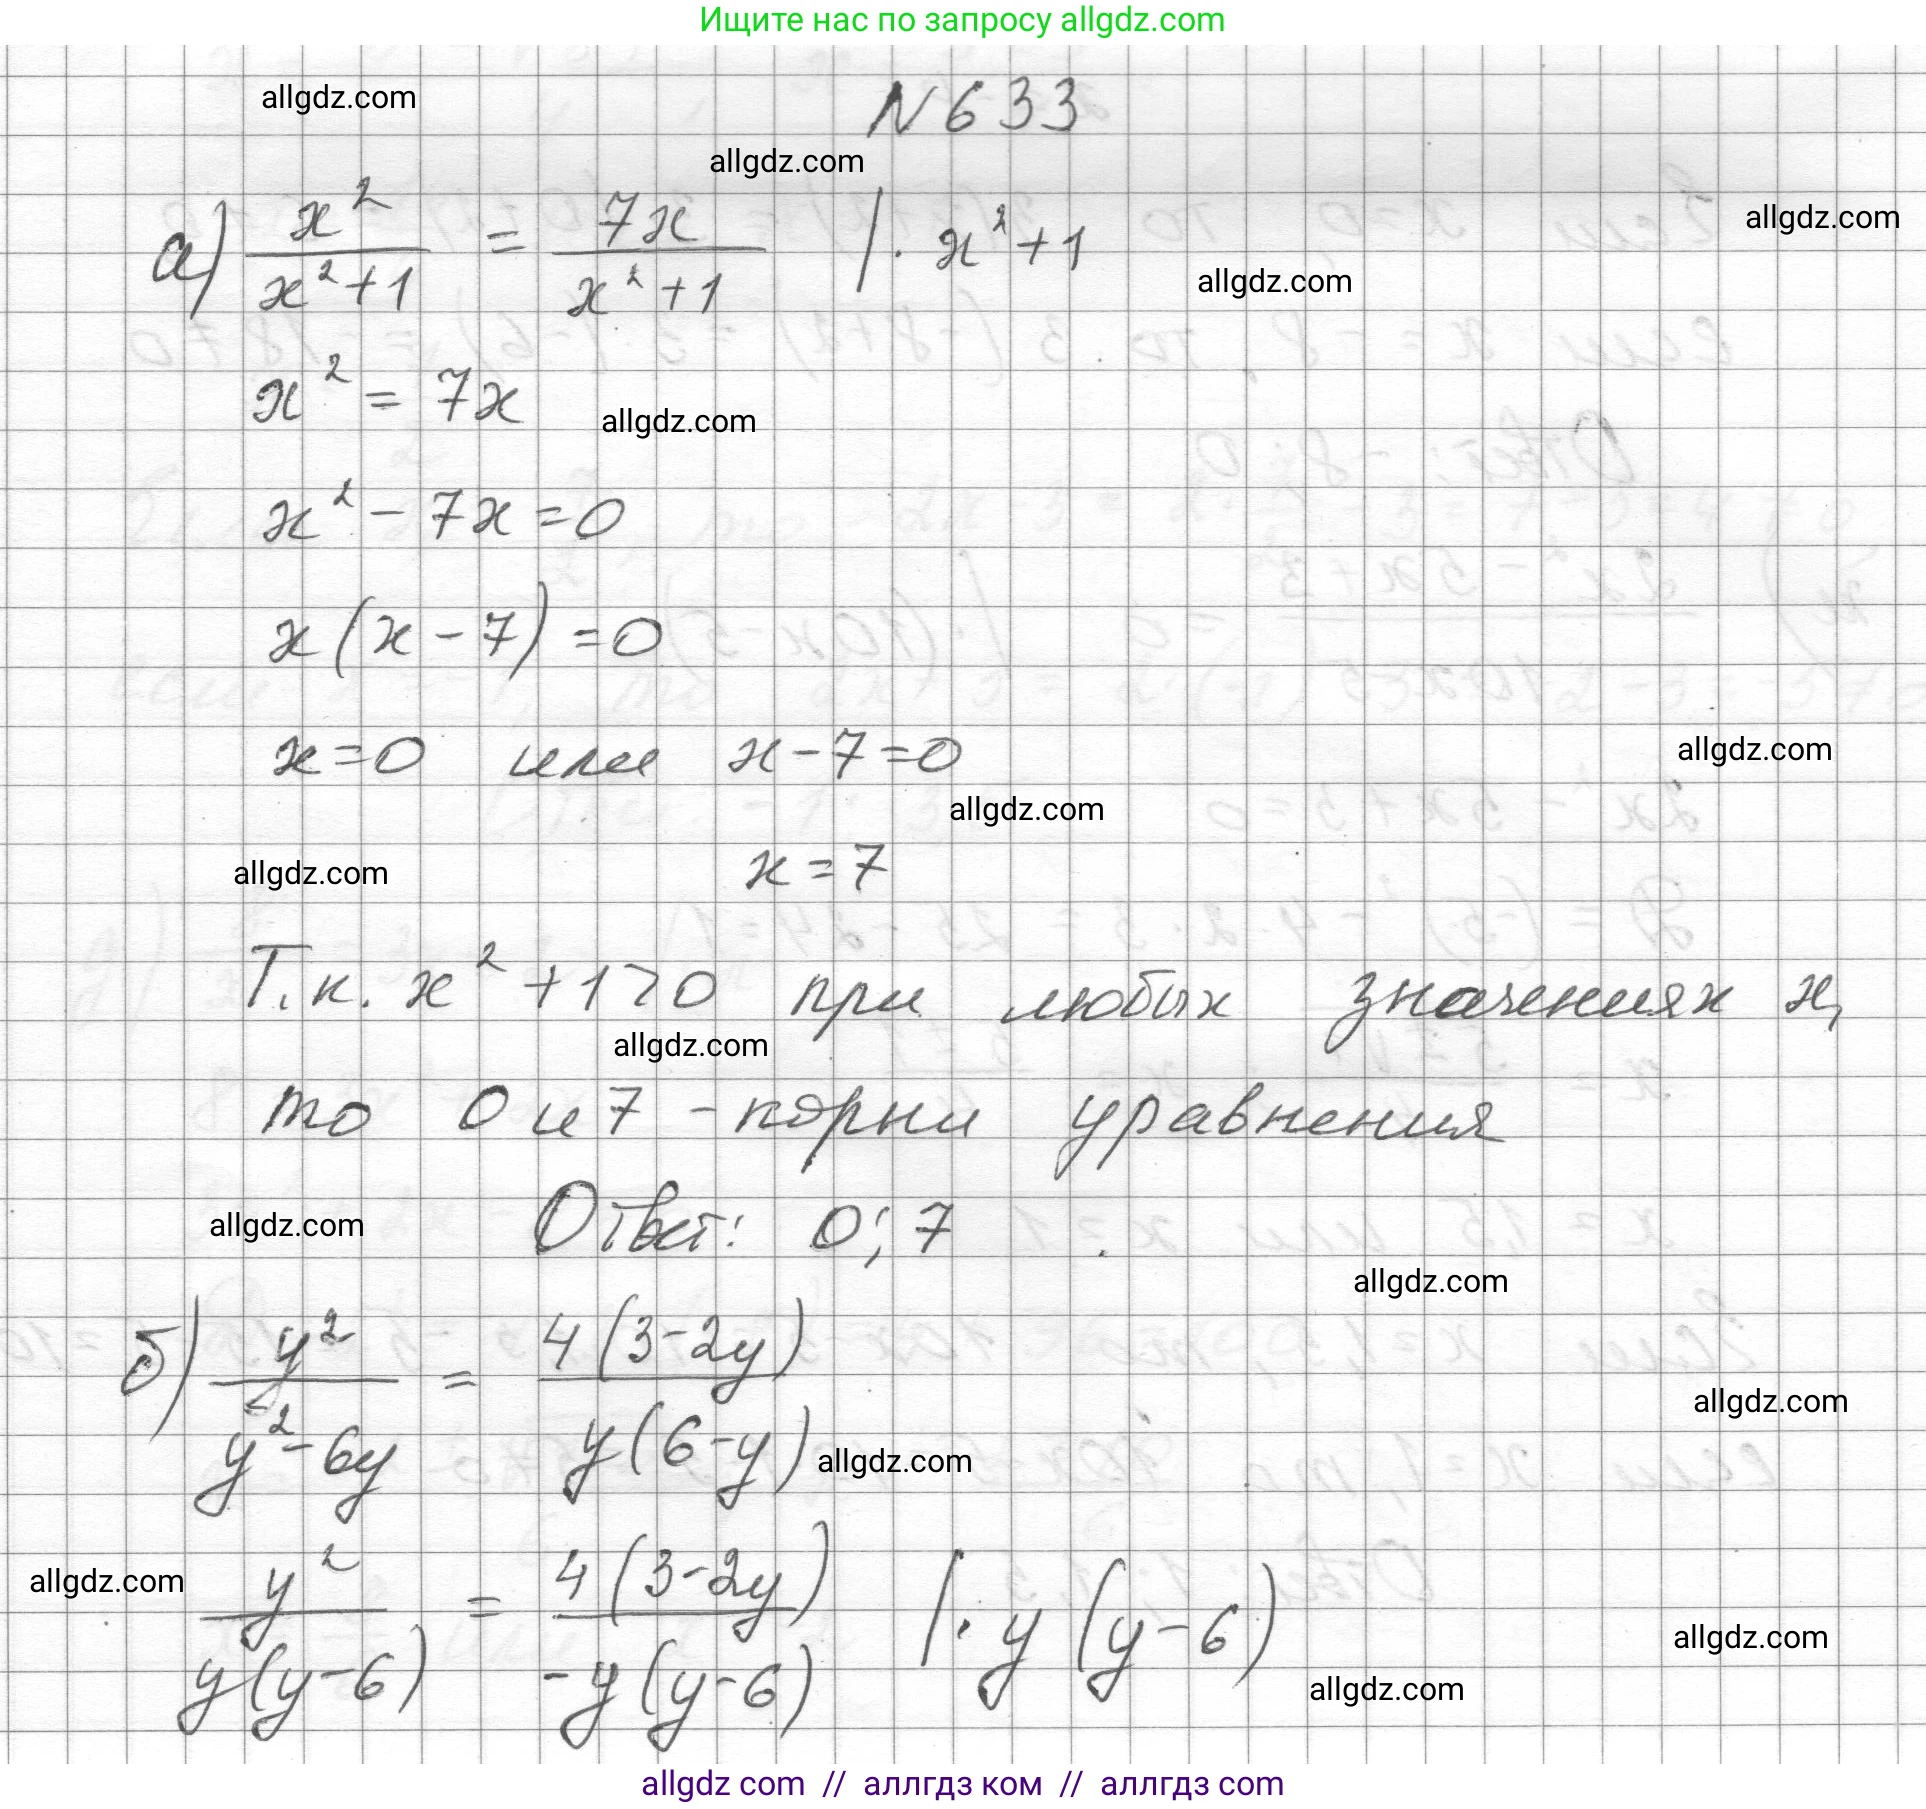 Ищите нас по запросу allgdz.com
allgdz.com
N 633
allgdz.com
а) x²/(x²+1) = 7x/(x²+1) | · x²+1
allgdz.com
allgdz.com
x² = 7x
allgdz.com
x² - 7x = 0
x(x - 7) = 0
x = 0 или x - 7 = 0
allgdz.com
allgdz.com
x = 7
allgdz.com
Т.к. x² + 1 > 0 при любых значениях x,
allgdz.com
то 0 и 7 - корни уравнения
Ответ: 0; 7
allgdz.com
allgdz.com
б) y²/(y² - 6y) = 4(3 - 2y)/(y(6 - y))
allgdz.com
allgdz.com
y²/(y(y - 6)) = 4(3 - 2y)/(-y(y - 6)) | · y(y - 6)
allgdz.com
allgdz.com
allgdz.com
allgdz com // аллгдз ком // аллгдз com